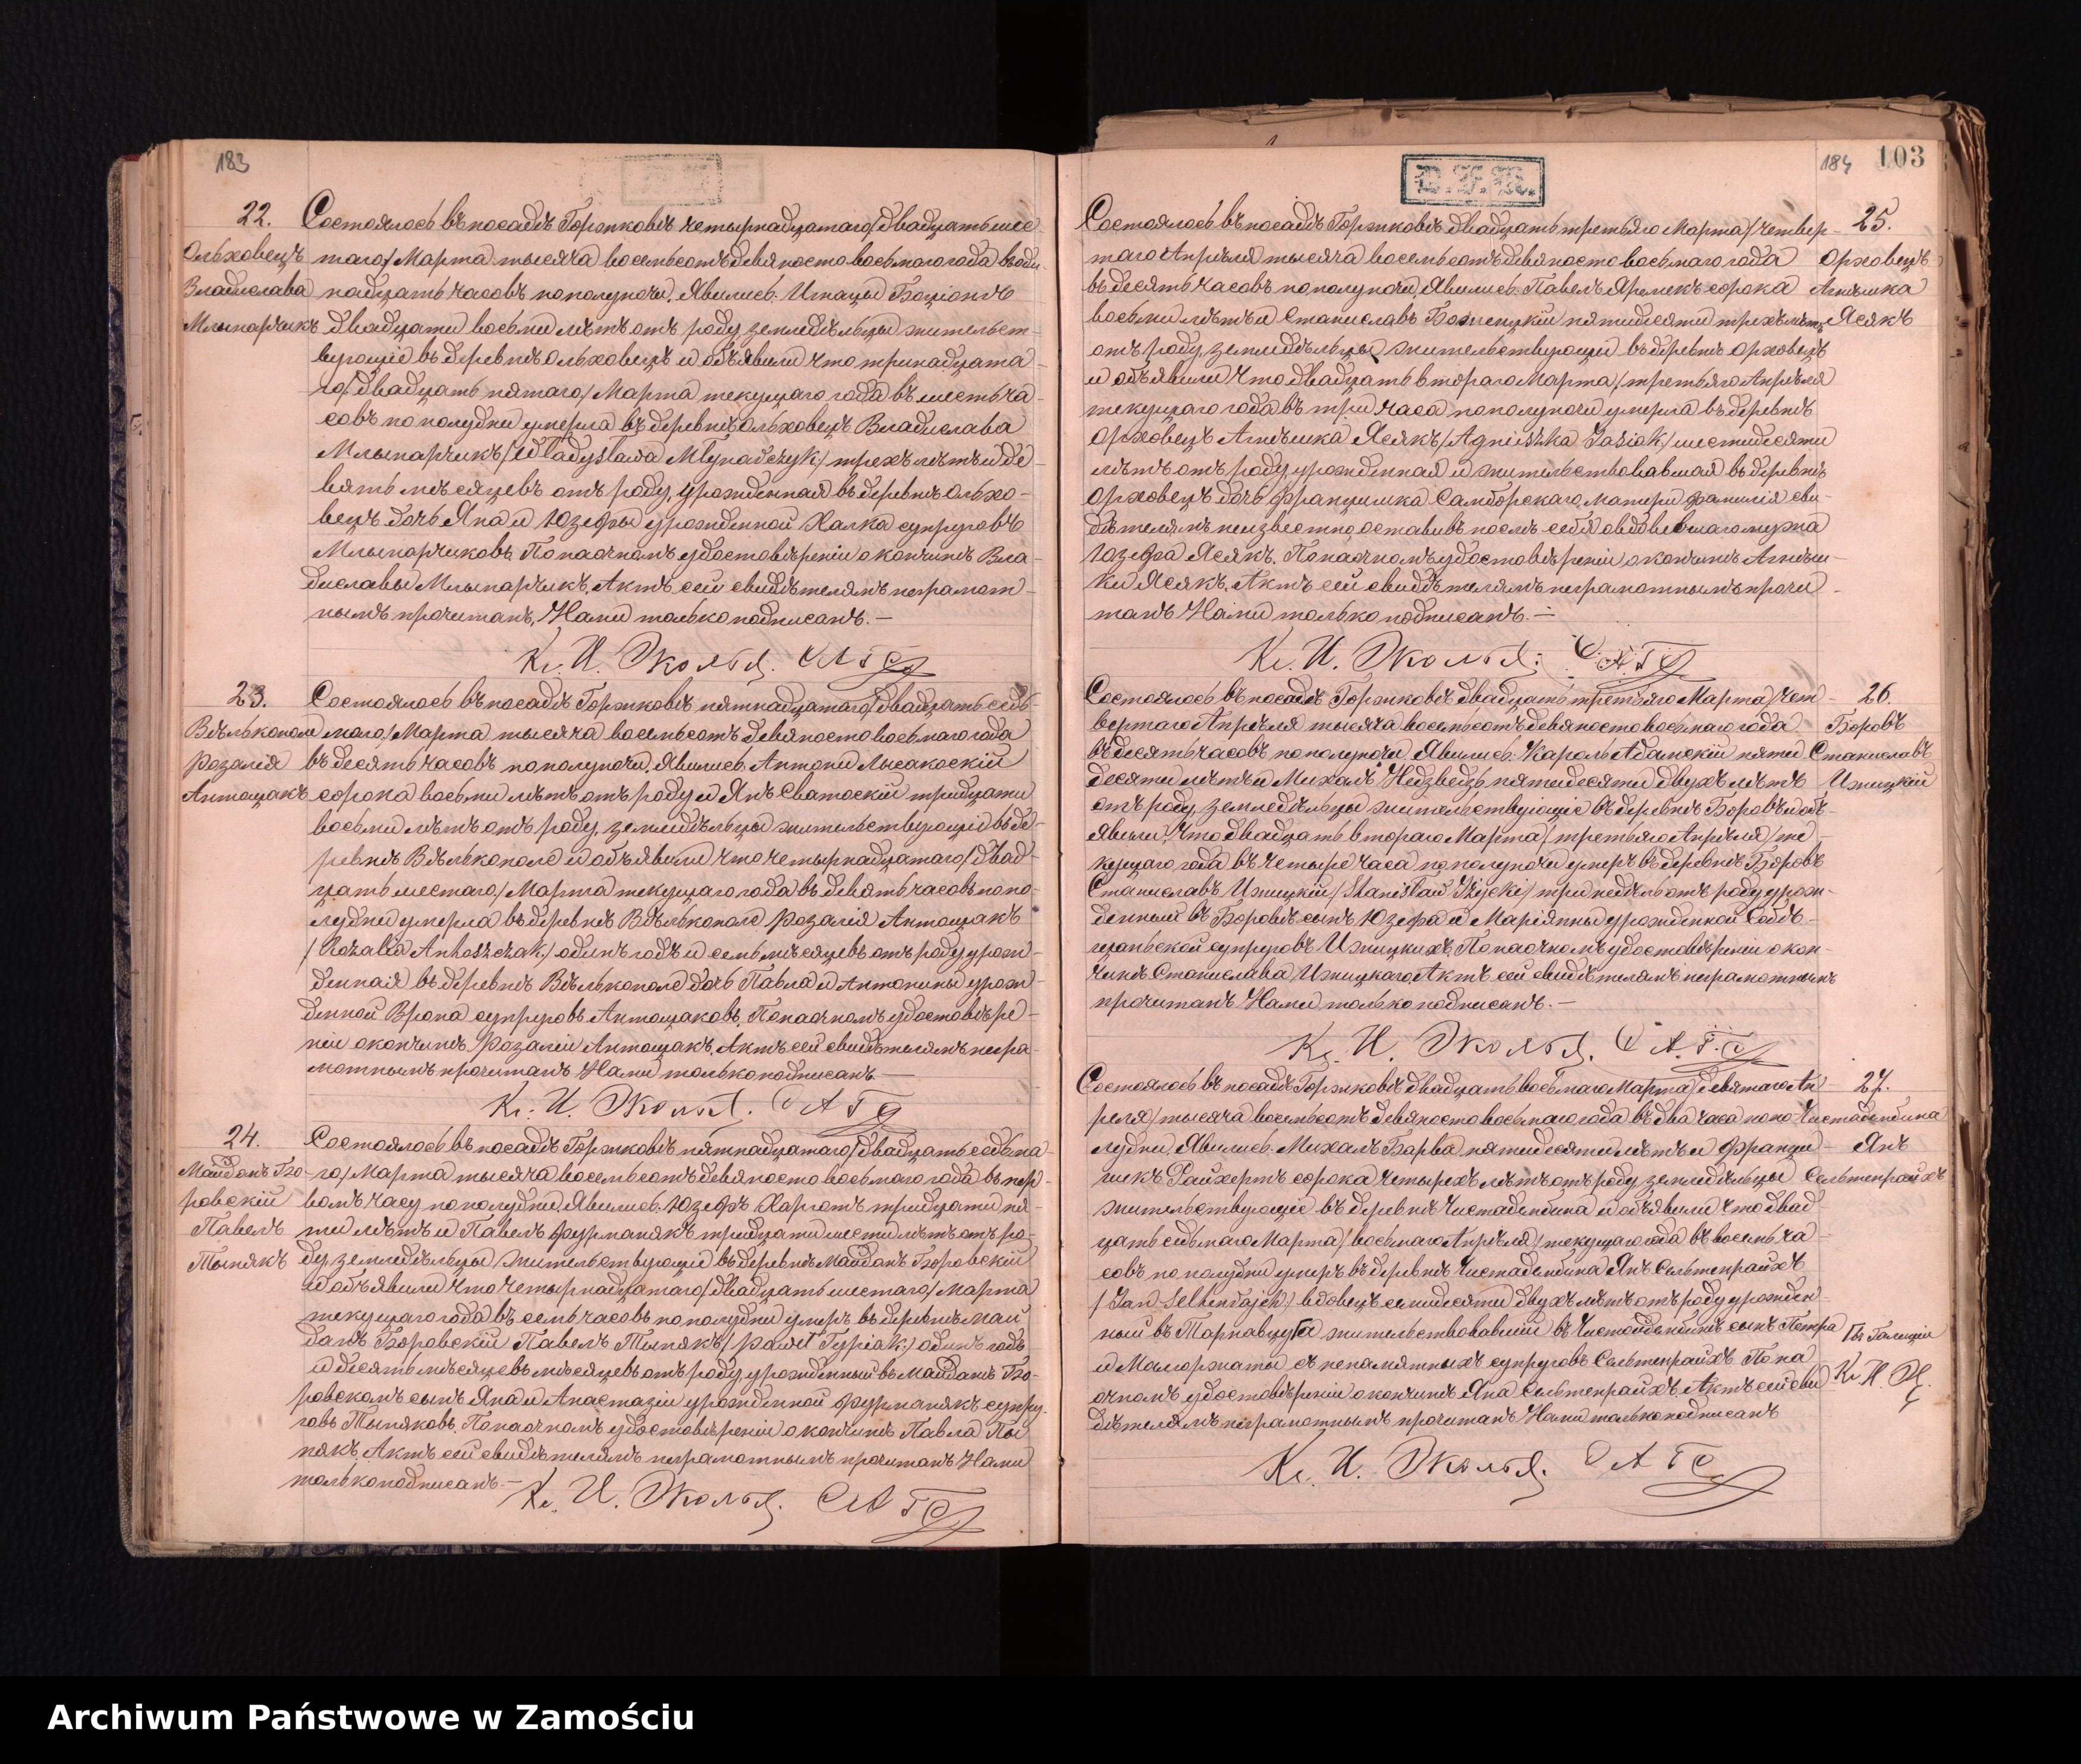 183
22.
Ольховецъ
Владислава
Млынарчикъ
Состоялось въ посадѣ Горжковѣ четырнадцатаго /двадцать шес-
таго/ Марта тысяча восемьсотъ девяносто восьмаго года въ оди-
надцать часовъ пополуночи. Явились: Игнацы
двадцати восьми лѣтъ отъ роду земледѣльцы жительст-
вующіе въ деревнѣ Ольховецъ и объявили что тринадцата-
го /двадцать пятаго/ Марта текущаго года въ шесть ча-
совъ пополудни умерла въ деревнѣ Ольховецъ Владислава
Млынарчикъ /Władysława Młynarczyk/ трехъ лѣтъ и де-
вять мѣсяцевъ отъ роду, урожденная въ деревнѣ Ольхо-
вецъ дочь Яна и Юзефы урожденной Халка супруговъ
Млынарчиковъ. По наочномъ удостовѣреніи о кончинѣ Вла-
диславы Млынарчикъ, Актъ сей свидѣтелямъ неграмот-
нымъ прочитанъ, Нами только подписанъ. —
Кс. И. Эколья. САГС
23.
Вѣлькополе
Розалія
Антощакъ
Состоялось въ посадѣ Горжковѣ пятнадцатаго /двадцать седь-
маго/ Марта тысяча восемьсотъ девяносто восьмаго года
въ десять часовъ пополуночи. Явились: Антоній Лысакоскій
сорока восьми лѣтъ отъ роду и Янъ Сватоскій тридцати
восьми лѣтъ отъ роду, земледѣльцы жительствующіе въ де-
ревнѣ Вѣлькополе и объявили что четырнадцатаго /двад-
цать шестаго/ Марта текущаго года въ девять часовъ попо-
лудни умерла въ деревнѣ Вѣлькополе Розалія Антощакъ
/Rozalia Antoszczak/ одинъ годъ и семь мѣсяцевъ отъ роду урож-
денная въ деревнѣ Вѣлькополе дочь Павла и Антонины урож-
денной Врона супруговъ Антощаковъ. По наочномъ удостовѣре-
ніи о кончинѣ Розаліи Антощакъ, Актъ сей свидѣтелямъ негра-
мотнымъ прочитанъ Нами только подписанъ. —
Кс. И. Эколья. САГС
24.
Майданъ Бо-
ровскій
Павелъ
Тыпякъ
Состоялось въ посадѣ Горжковѣ пятнадцатаго /двадцать седьма-
го/ Марта тысяча восемьсотъ девяносто восьмаго года въ пер-
вомъ часу пополудни. Явились: Юзефъ Харготъ тридцати пя-
ти лѣтъ и Павелъ Фурманякъ тридцати шести лѣтъ отъ ро-
ду, земледѣльцы жительствующіе въ деревнѣ Майданъ Боровскій
и объявили что четырнадцатаго /двадцать шестаго/ Марта
текущаго года въ семь часовъ пополудни умеръ въ деревнѣ Май-
данъ Боровскій Павелъ Тыпякъ /Paweł Typiak/ одинъ годъ
и десять мѣсяцевъ мѣсяцевъ отъ роду, урожденный въ Майданѣ Бо-
ровскомъ сынъ Яна и Анастазіи урожденной Фурманякъ супру-
говъ Тыпяковъ. По наочномъ удостовѣреніи о кончинѣ Павла Ты-
пякъ, Актъ сей свидѣтелямъ неграмотнымъ прочитанъ Нами
только подписанъ. —
Кс. И. Эколья. САГС
184
103
25.
Орховецъ
Агнѣшка
Ясякъ
Состоялось въ посадѣ Горжковѣ двадцать третьяго Марта /четвер-
таго Апрѣля тысяча восемьсотъ девяносто восьмаго года
въ десять часовъ пополуночи. Явились: Павелъ Яремекъ сорока
восьми лѣтъ и Станиславъ пятидесяти трехъ лѣтъ
отъ роду, земледѣльцы жительствующіе въ деревнѣ Орховецъ
и объявили что двадцать втораго Марта /третьяго Апрѣля
текущаго года въ три часа пополуночи умерла въ деревнѣ
Орховецъ Агнѣшка Ясякъ /Agnieszka Jasiak/ шестидесяти
лѣтъ отъ роду, урожденная и жительствовавшая въ деревнѣ
Орховецъ дочь Францишка Самборскаго, матери фамилія сви-
дѣтелямъ неизвестно, оставивъ послѣ себя овдовѣвшаго мужа
Юзефа Ясякъ. По наочномъ удостовѣреніи о кончинѣ Агнѣш-
ки Ясякъ, Актъ сей свидѣтелямъ неграмотнымъ прочи-
танъ Нами только подписанъ. —
Кс. И. Эколья. САГС
26.
Боровъ
Станиславъ
Ижицкій
Состоялось въ посадѣ Горжковѣ двадцать третьяго Марта /чет-
вертаго Апрѣля тысяча восемьсотъ девяносто восьмаго года
въ десять часовъ пополуночи. Явились: Кароль Адамскій пяти-
десяти лѣтъ и Михалъ Недзведзь пятидесяти двухъ лѣтъ
отъ роду, земледѣльцы жительствующіе въ деревнѣ Боровъ и объ-
явили, что двадцать втораго Марта /третьяго Апрѣля/ те-
кущаго года въ четыре часа пополуночи умеръ въ деревнѣ Боровъ
Станиславъ Ижицкій /Stanisław Iżycki/ три недѣли отъ роду урож-
денный въ Боровѣ сынъ Юзефа и Маріянны урожденной
супруговъ Ижицкихъ. По наочномъ удостовѣреніи о кон-
чинѣ Станислава Ижицкаго, Актъ сей свидѣтелямъ неграмотнымъ
прочитанъ Нами только подписанъ. —
Кс. И. Эколья. САГС
27.
Чистадембина
Янъ
Сельтенрайхъ
Состоялось въ посадѣ Горжковѣ двадцать восьмаго Марта /девятаго Ап-
реля/ тысяча восемьсотъ девяносто восьмаго года въ два часа попо-
лудни. Явились: Михалъ Барва пятидесяти лѣтъ и Франци-
шекъ Райхертъ сорока четырехъ лѣтъ отъ роду, земледѣльцы
жительствующіе въ деревнѣ Чистадембина и объявили что двад-
цать седьмаго Марта /восьмаго Апрѣля/ текущаго года въ восемь ча-
совъ пополудни умеръ въ деревнѣ Чистадембина Янъ Сельтенрайхъ
/Jan Seltenrajch/ вдовецъ семидесяти двухъ лѣтъ отъ роду урожден-
ный въ Тарнавцу жительствовавшій въ Чистойдембинѣ сынъ Петра
и Малгоржаты съ непамятныхъ супруговъ Сельтенрайхъ. По на-
очномъ удостовѣреніи о кончинѣ Яна Сельтенрайхъ, Актъ сей сви-
дѣтелямъ неграмотнымъ прочитанъ Нами только подписанъ
въ Галиціи
Кс. И. Э.
Кс. И. Эколья. САГС
Archiwum Państwowe w Zamościu